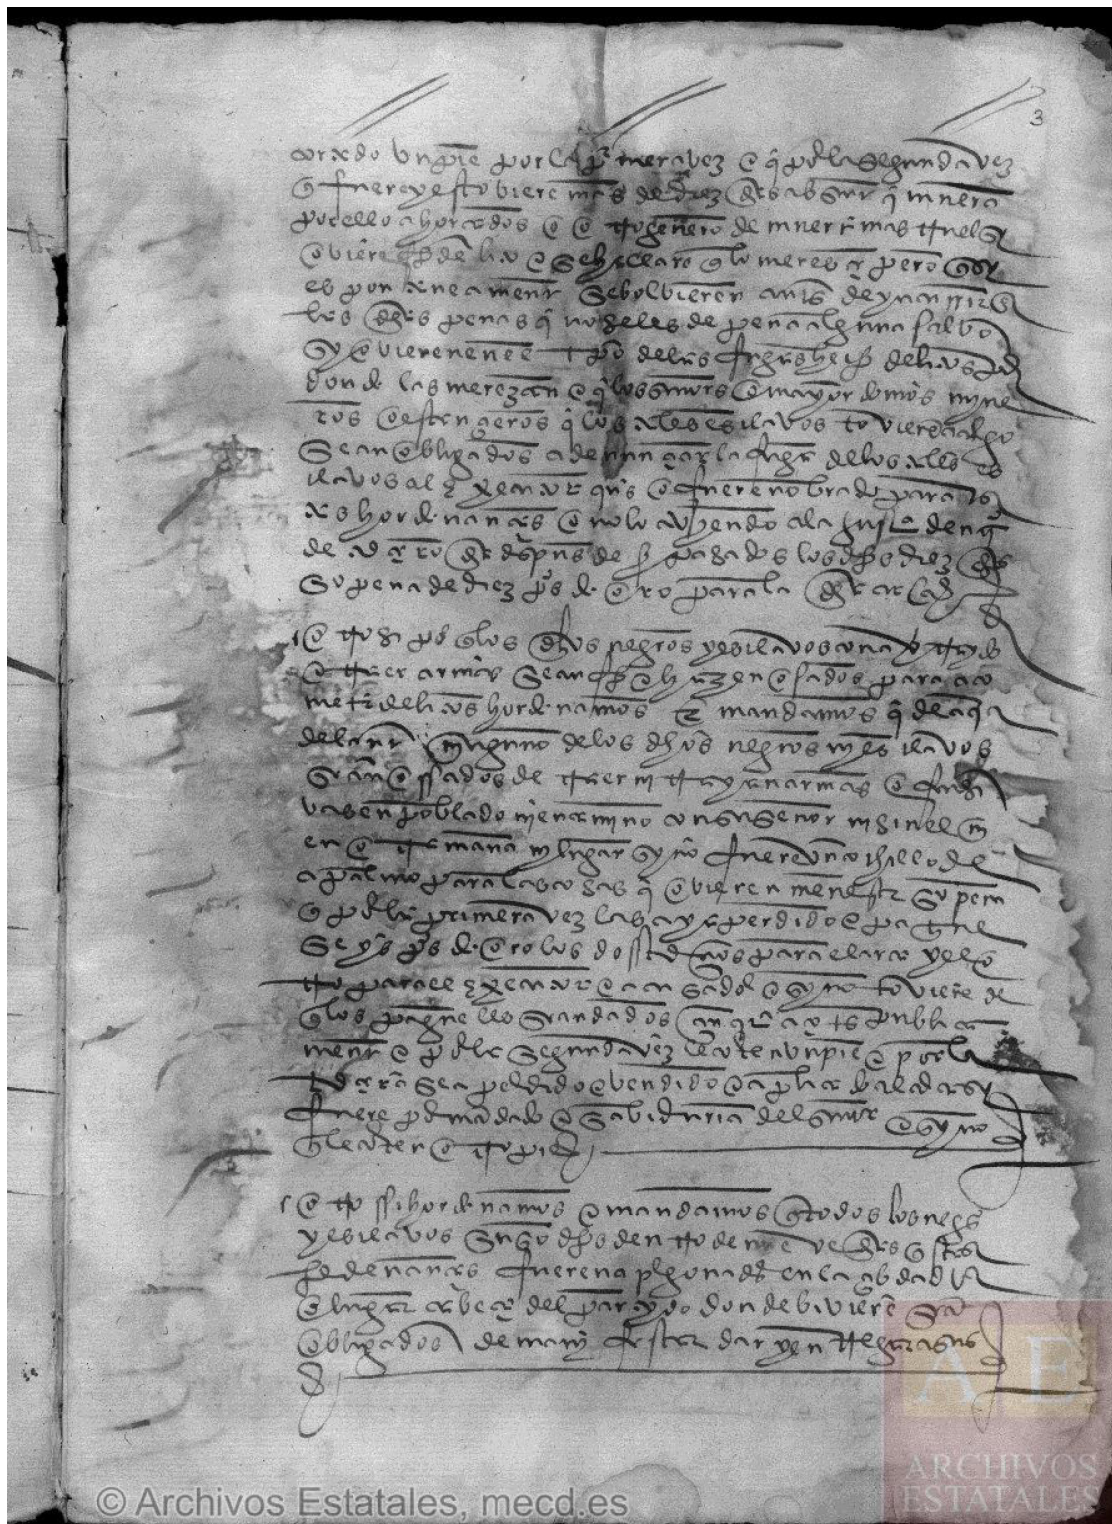 3
cortado un pie por la primera vez e q por la segunda vez
q fuere y estobiere mas de diez dias absente q muera
por ello ahorcados e otro genero de muerte mas cruel sy
oviere hecho delito e se hallare q lo meresca pero q sy
es pontaneamente se bolvieren antes de yncurrir en
las dhas penas q no se les de pena alguna salvo
sy ovieren en el tpo de las fugas hecho delitos por
donde las merezcan e q los señores e mayordomos myne
ros o estangeros q los tales esclavos tovieren a cargo
sean obligados a denunciar la fuga de los tales es
clavos al executor ques o fuere nonbrado para estas
hordenanças o no lo aviendo a la justa dentro
de quarto dia despues de pasados los dhos diez dias
so pena de diez ps de oro para la dha arca
e otrosi por q los dhos negros y esclavos con atrevydo
e traer armas sean fho e hazen osados para aco
meter delitos hordenamos e mandamos q de aqui
delante ninguno de los dhos negros ni esclavos
sean osados de traer ni traygan armas ofensi
vas en poblado ni en camino con su señor ni sin el ni
en otra manera ni lugar sy no fuere un cochillo de
a palmo para las cosas q oviere menester so pena
q por la primera vez las aya perdido e pague
seys ps de oro los dos tercios para el arca y el o
tro para el executor e acusador e sy no toviere de
q los pague le sean dados cinquenta açotes publica
mente e por la segunda vez le corten un pie e por la
tercera sea perdido e vendido e aplicado al arca sy
fuere por mandado o sabiduria del señor e sy no
q le corten otro pie
e otrosi hordenamos e mandamos q todos los negros
y esclavos suso dhos dentro de nueve dias q estas
hordenanças fueren aplegonadas en la çibdad
o lugar cabeça del partydo donde bivieren sean
obligados de manyfestar dar y entregar a sus
© Archivos Estatales, mecd.es
AE
ARCHIVOS
ESTATALES